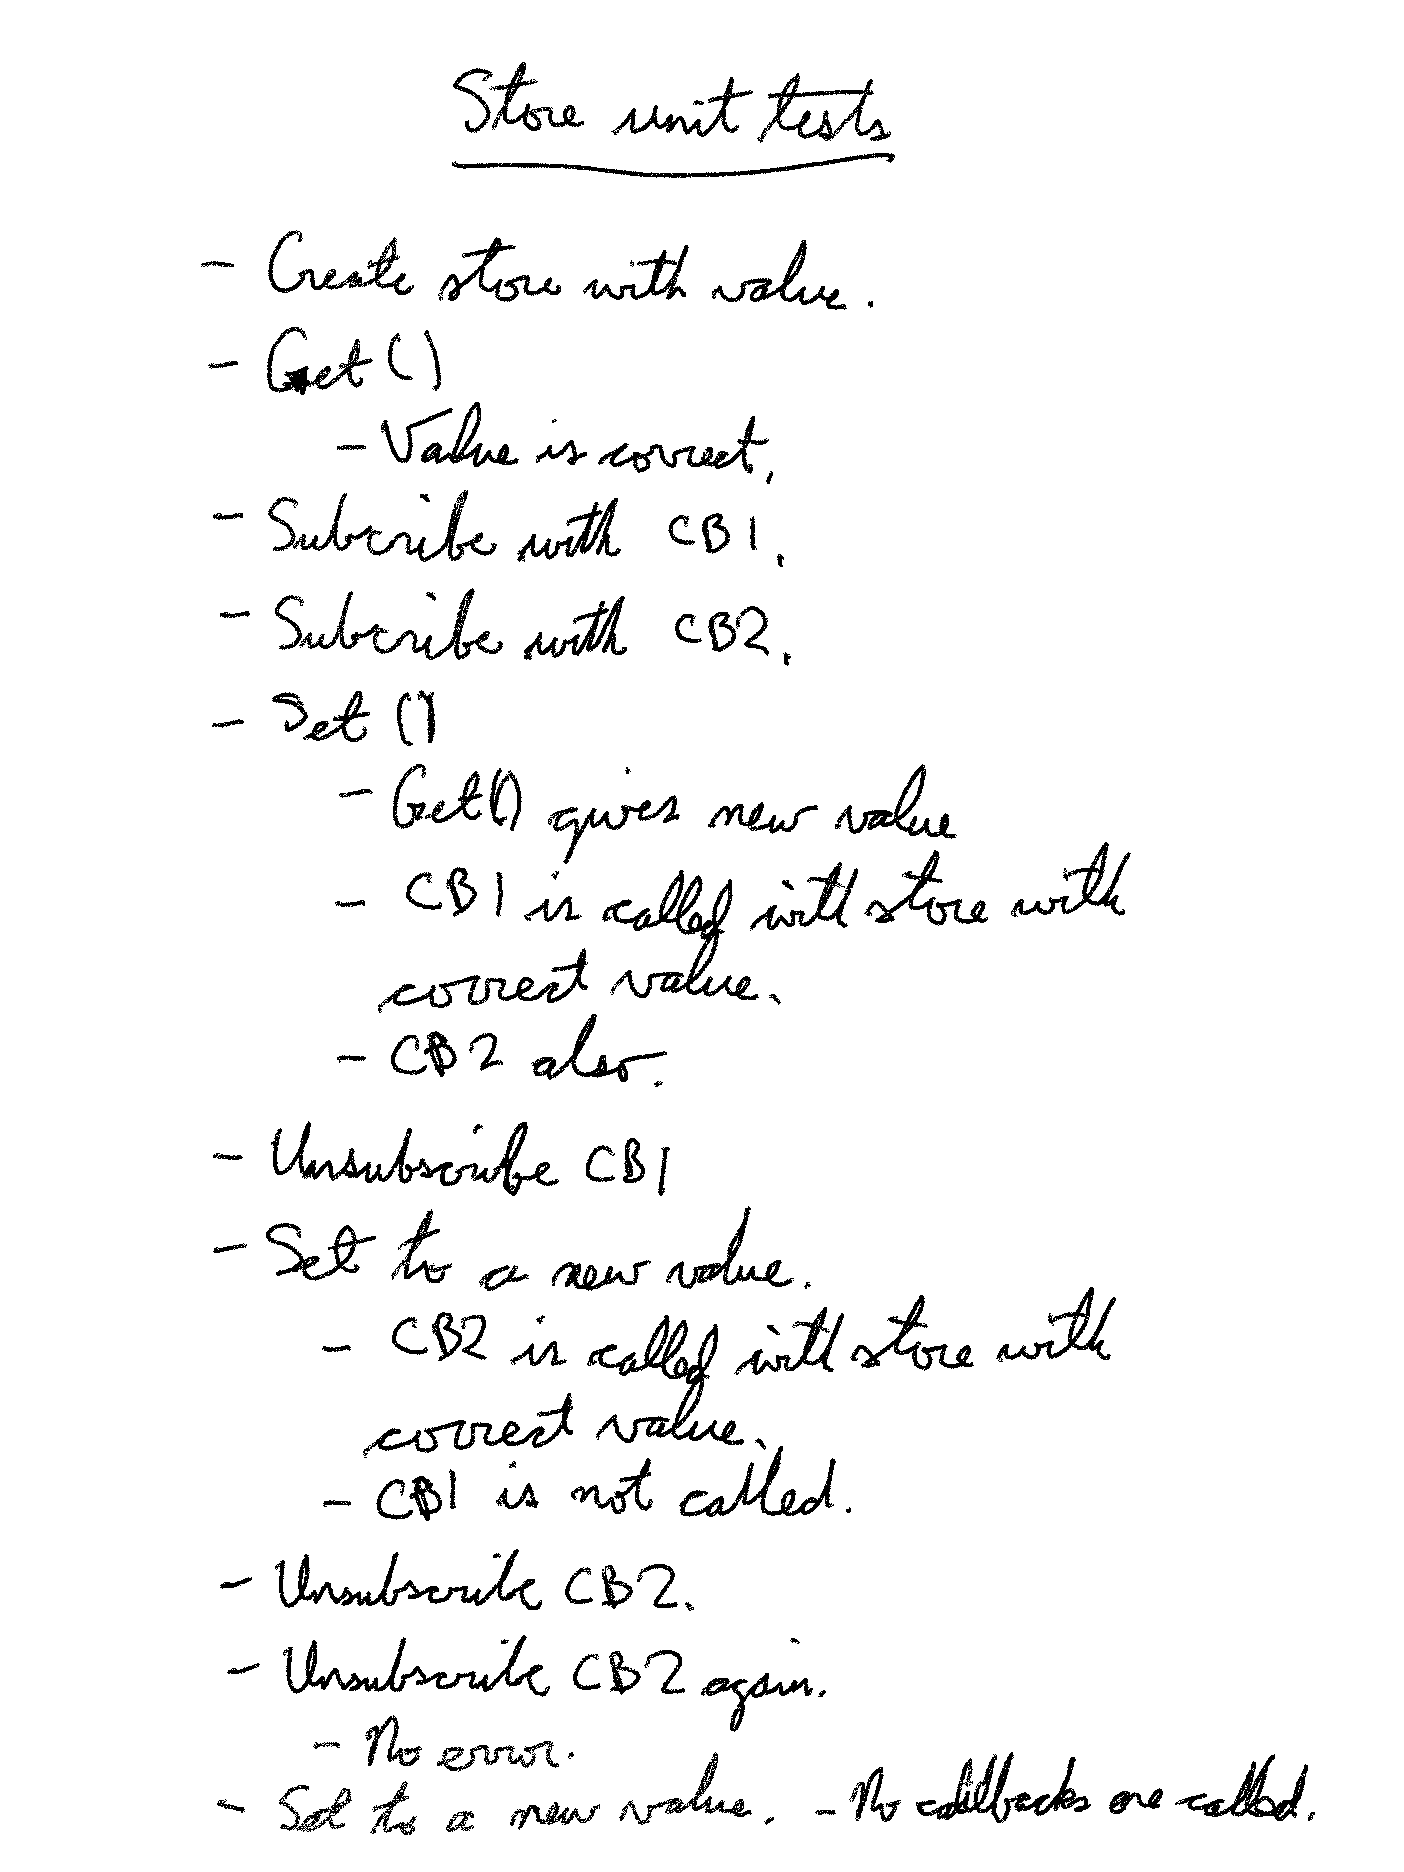 Store unit tests
- Create store with value.
- Get()
- Value is correct.
- Subcribe with CB1.
- Subcribe with CB2.
- Set ()
- Get() gives new value
- CB1 is called with store with
correct value.
- CB2 also.
- Unsubscribe CB1
- Set to a new value.
- CB2 is called with store with
correct value.
- CB1 is not called.
- Unsubscribe CB2.
- Unsubscribe CB2 again.
- No error.
- Set to a new value. - No callbacks are called.